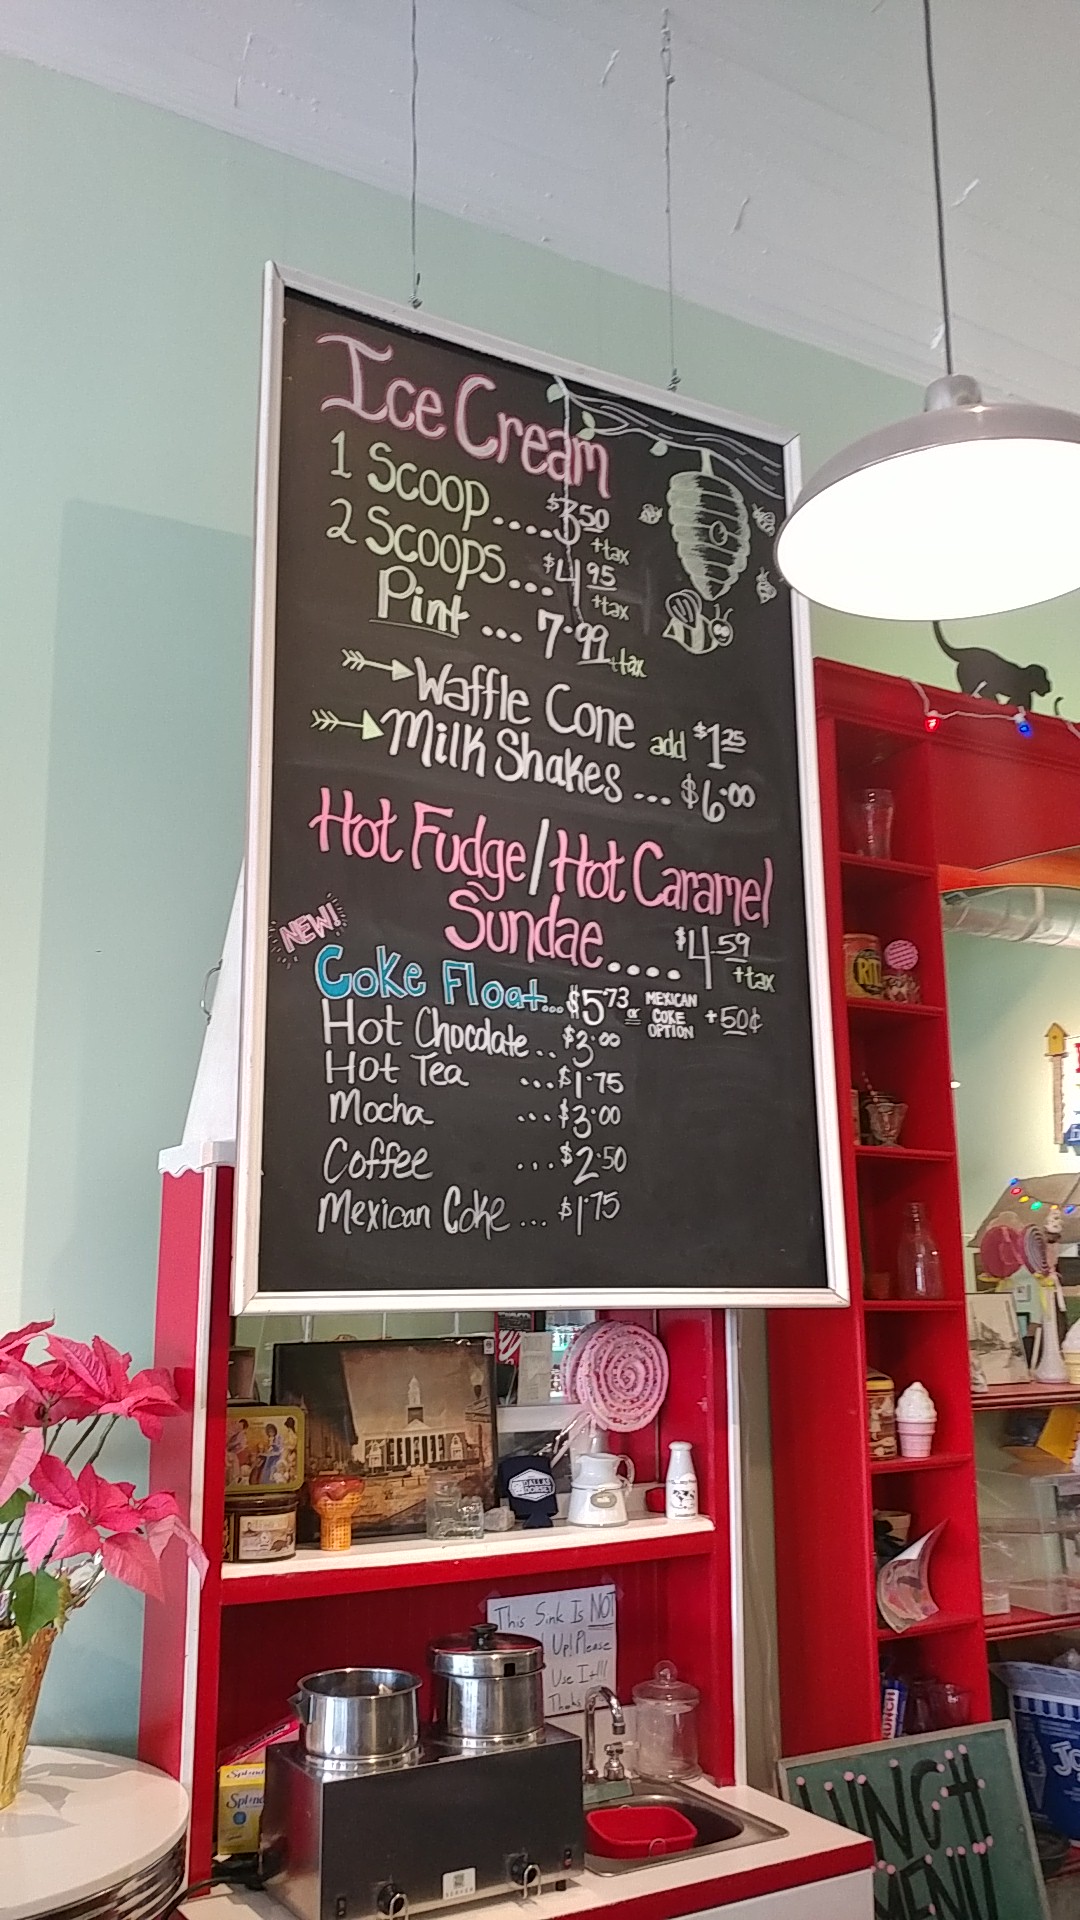 Ice Cream
1 Scoop....$3.50
+tax
2 Scoops...$4.95
+tax
Pint ... 7.99 +tax
Waffle Cone add $1.25
Milk Shakes ... $6.00
Hot Fudge/Hot Caramel
Sundae.... $4.59
+tax
NEW!
Coke Float...$5.73 or MEXICAN COKE OPTION +50¢
Hot Chocolate..$3.00
Hot Tea ...$1.75
Mocha ...$3.00
Coffee ...$2.50
Mexican Coke ... $1.75
RITZ
DALLAS
DORSEY
This Sink Is NOT
Up! Please
Use It!!!
Thanks
Splenda
Splenda
SERVER
CRUNCH
LUNCH
MENU